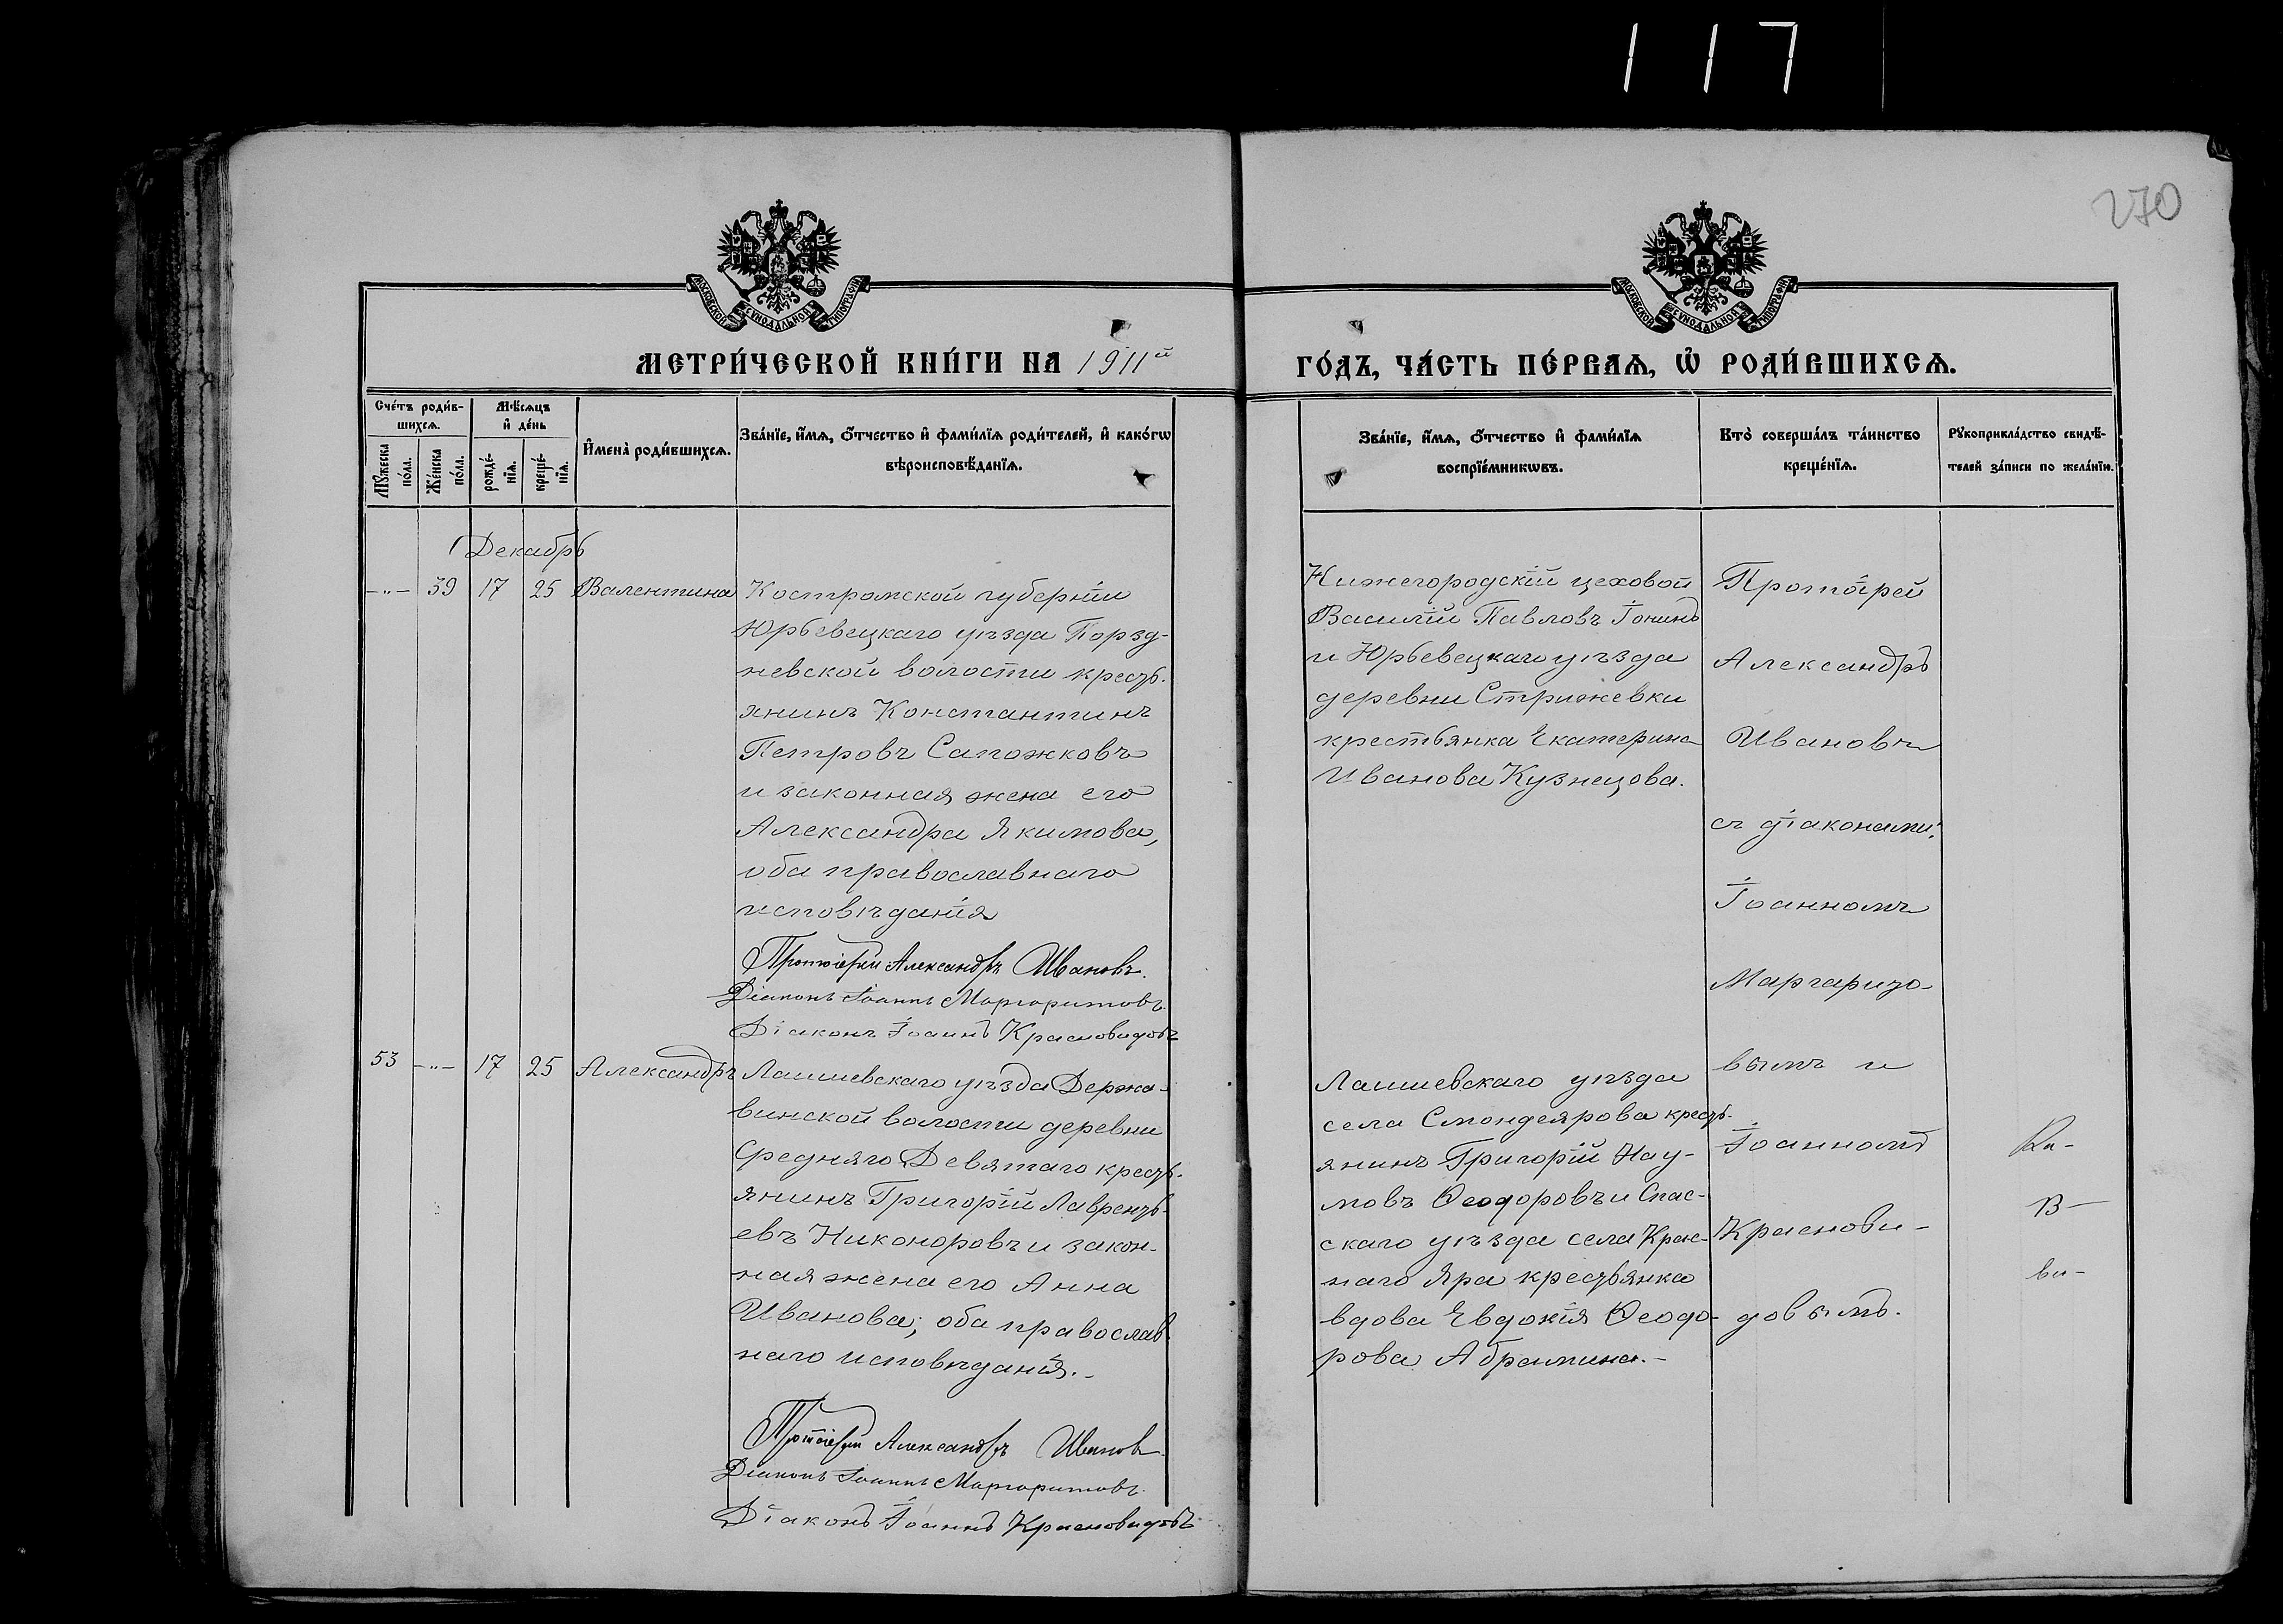 117
270
МОСКОВСКОЙ СѴНОДАЛЬНОЙ ТИПОГРАФІИ
МОСКОВСКОЙ СѴНОДАЛЬНОЙ ТИПОГРАФІИ
МЕТРИ́ЧЕСКОЙ КНИ́ГИ НА 1911й
ГО́ДЪ, ЧА́СТЬ ПЕ́РВАѦ, Ѡ҆ РОДИ́ВШИХСѦ.
Сче́тъ роди́в-
шихсѧ.
Мꙋ́жеска
по́ла.
Же́нска
по́ла.
Мѣ́сѧцъ
и҆ де́нь
рожде́-
нїѧ.
креще́-
нїѧ.
И҆мена̀ роди́вшихсѧ.
Зва́нїе, и҆́мѧ, ѻ҆́тчество и҆ фами́лїѧ роди́телей, и҆ како́гѡ
вѣроисповѣ́данїѧ.
Зва́нїе, и҆́мѧ, ѻ҆́тчество и҆ фами́лїѧ
воспрїе́мникѡвъ.
Кто̀ соверша́лъ та́инство
креще́нїѧ.
Рꙋкоприкла́дство свидѣ́-
телей за́писи по жела́нїю.
Декабрь
-"- 39 17 25 Валентина
Костромской губерніи
Юрьевецкаго уѣзда Порзд-
невской волости кресть-
янинъ Константинъ
Петровъ Сапожковъ
и законная жена его
Александра Якимова,
оба православнаго
исповѣданія
Протоіерей Александръ Ивановъ.
Діаконъ Іоаннъ Маргаритовъ.
Діаконъ Іоаннъ Красновидовъ
Нижегородскій цеховой
Василій Павловъ Іонинъ
и Юрьевецкаго уѣзда
деревни Стрижевки
крестьянка Екатерина
Иванова Кузнецова.
Протоіерей
Александръ
Ивановъ
съ діаконами:
Іоанномъ
Маргарито-
вымъ и
Іоанномъ
Краснови-
довымъ.
53 -"- 17 25 Александръ
Лаишевскаго уѣзда Держа-
винской волости деревни
Средняго Девятаго кресть-
янинъ Григорій Лавренть-
евъ Никоноровъ и закон-
ная жена его Анна
Иванова; оба православ-
наго исповѣданія.-
Протоіерей Александръ Ивановъ
Діаконъ Іоаннъ Маргаритовъ.
Діаконъ Іоаннъ Красновидовъ
Лаишевскаго уѣзда
села Смондеярова кресть-
янинъ Григорій Нау-
мовъ Ѳеодоровъ и Спас-
скаго уѣзда села Крас-
наго Яра крестьянка
вдова Евдокія Ѳеодо-
рова Абрамина.-
В-